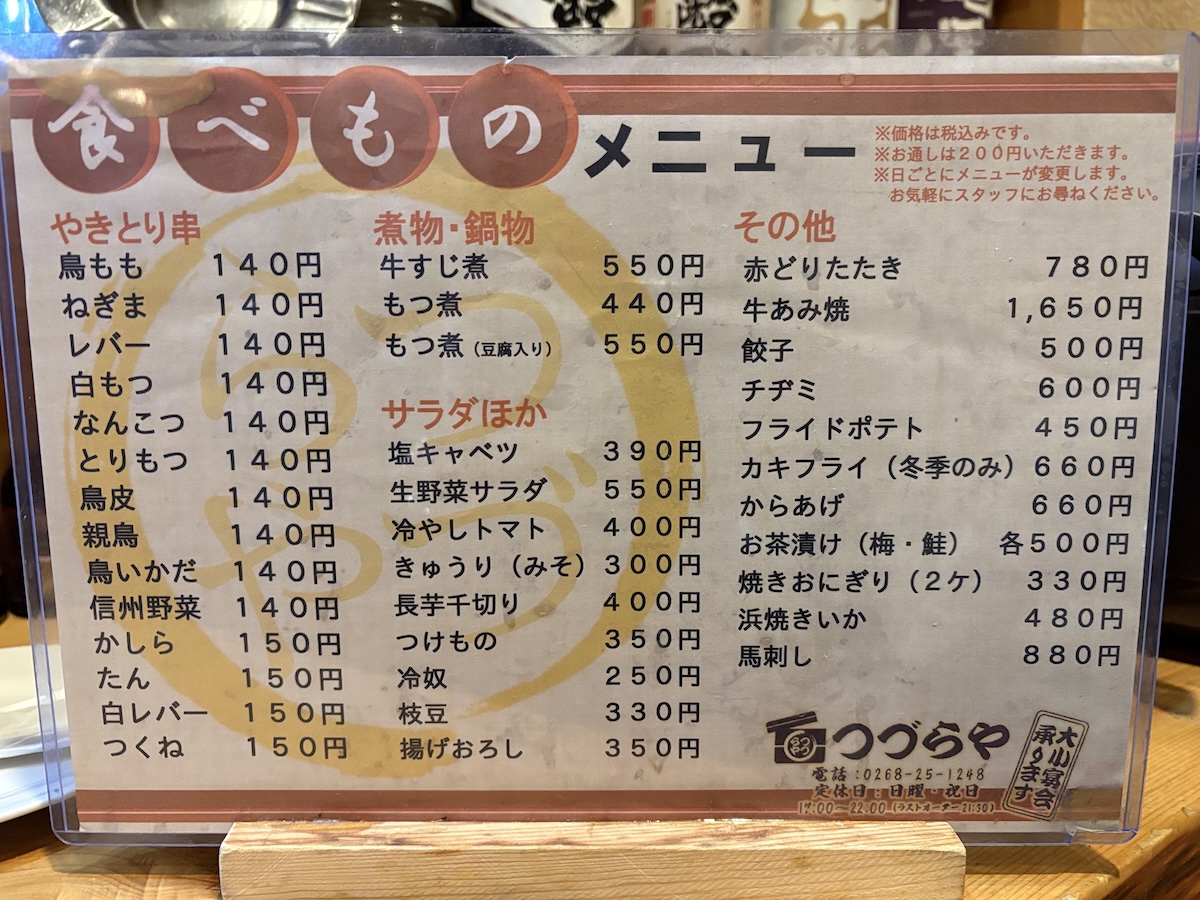 食べもの メニュー
※価格は税込みです。
※お通しは200円いただきます。
※日ごとにメニューが変更します。
お気軽にスタッフにお尋ねください。
やきとり串
鳥もも 140円
ねぎま 140円
レバー 140円
白もつ 140円
なんこつ 140円
とりもつ 140円
鳥皮 140円
親鳥 140円
鳥いかだ 140円
信州野菜 140円
かしら 150円
たん 150円
白レバー 150円
つくね 150円
煮物・鍋物
牛すじ煮 550円
もつ煮 440円
もつ煮(豆腐入り) 550円
サラダほか
塩キャベツ 390円
生野菜サラダ 550円
冷やしトマト 400円
きゅうり(みそ) 300円
長芋千切り 400円
つけもの 350円
冷奴 250円
枝豆 330円
揚げおろし 350円
その他
赤どりたたき 780円
牛あみ焼 1,650円
餃子 500円
チヂミ 600円
フライドポテト 450円
カキフライ(冬季のみ) 660円
からあげ 660円
お茶漬け(梅・鮭) 各500円
焼きおにぎり(2ケ) 330円
浜焼きいか 480円
馬刺し 880円
つづらや
電話:0268-25-1248
定休日:日曜・祝日
17:00~22:00(ラストオーダー21:30)
大小宴会
承ります
つづらや